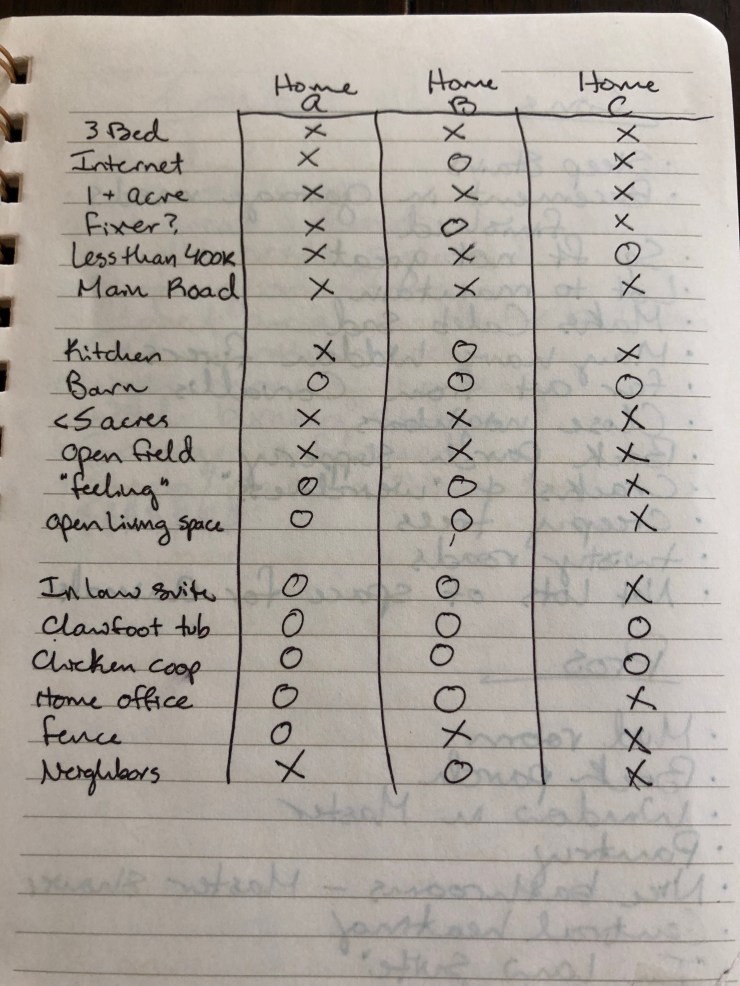 Home Home Home
A B C
3 Bed X X X
Internet X O X
1+ acre X X X
Fixer? X O X
Less than 400K X X O
Main Road X X X
Kitchen X O X
Barn O O O
<5 acres X X X
open field X X X
"feeling" O O X
open living space O O X
In law suite O O X
Clawfoot tub O O O
Chicken coop O O O
Home office O O X
fence O X X
Neighbors X O X